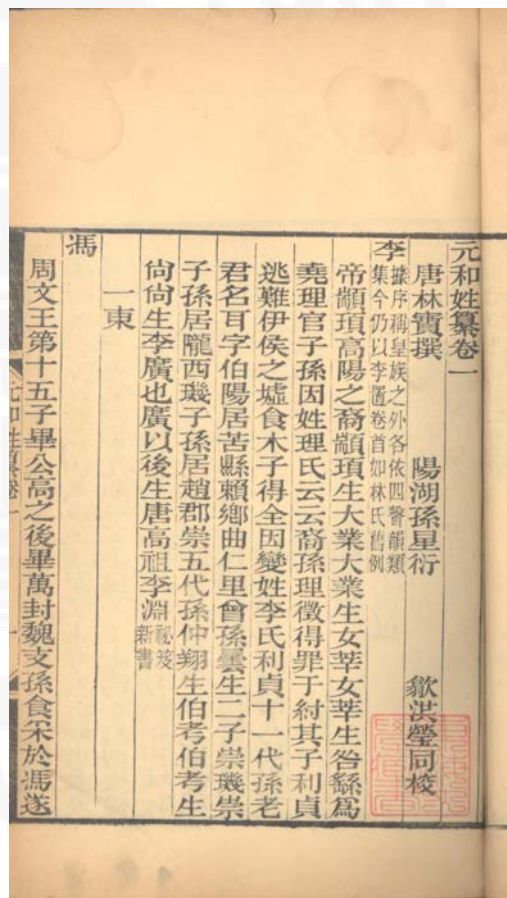 元和姓纂卷一
唐林寶撰 陽湖孫星衍 歙洪瑩同校
李
據序稱皇族之外各依四聲韻類
集今仍以李置卷首如林氏舊例
帝顓頊高陽之裔顓頊生大業大業生女莘女莘生咎繇爲
堯理官子孫因姓理氏云云裔孫理徵得罪于紂其子利貞
逃難伊侯之墟食木子得全因變姓李氏利貞十一代孫老
君名耳字伯陽居苦縣賴鄉曲仁里曾孫曇生二子崇璣崇
子孫居隴西璣子孫居趙郡崇五代孫仲翔生伯考伯考生
尙尙生李廣也廣以後生唐高祖李淵
祕笈
新書
一東
馮
周文王第十五子畢公高之後畢萬封魏支孫食采於馮遂
元和姓纂卷一